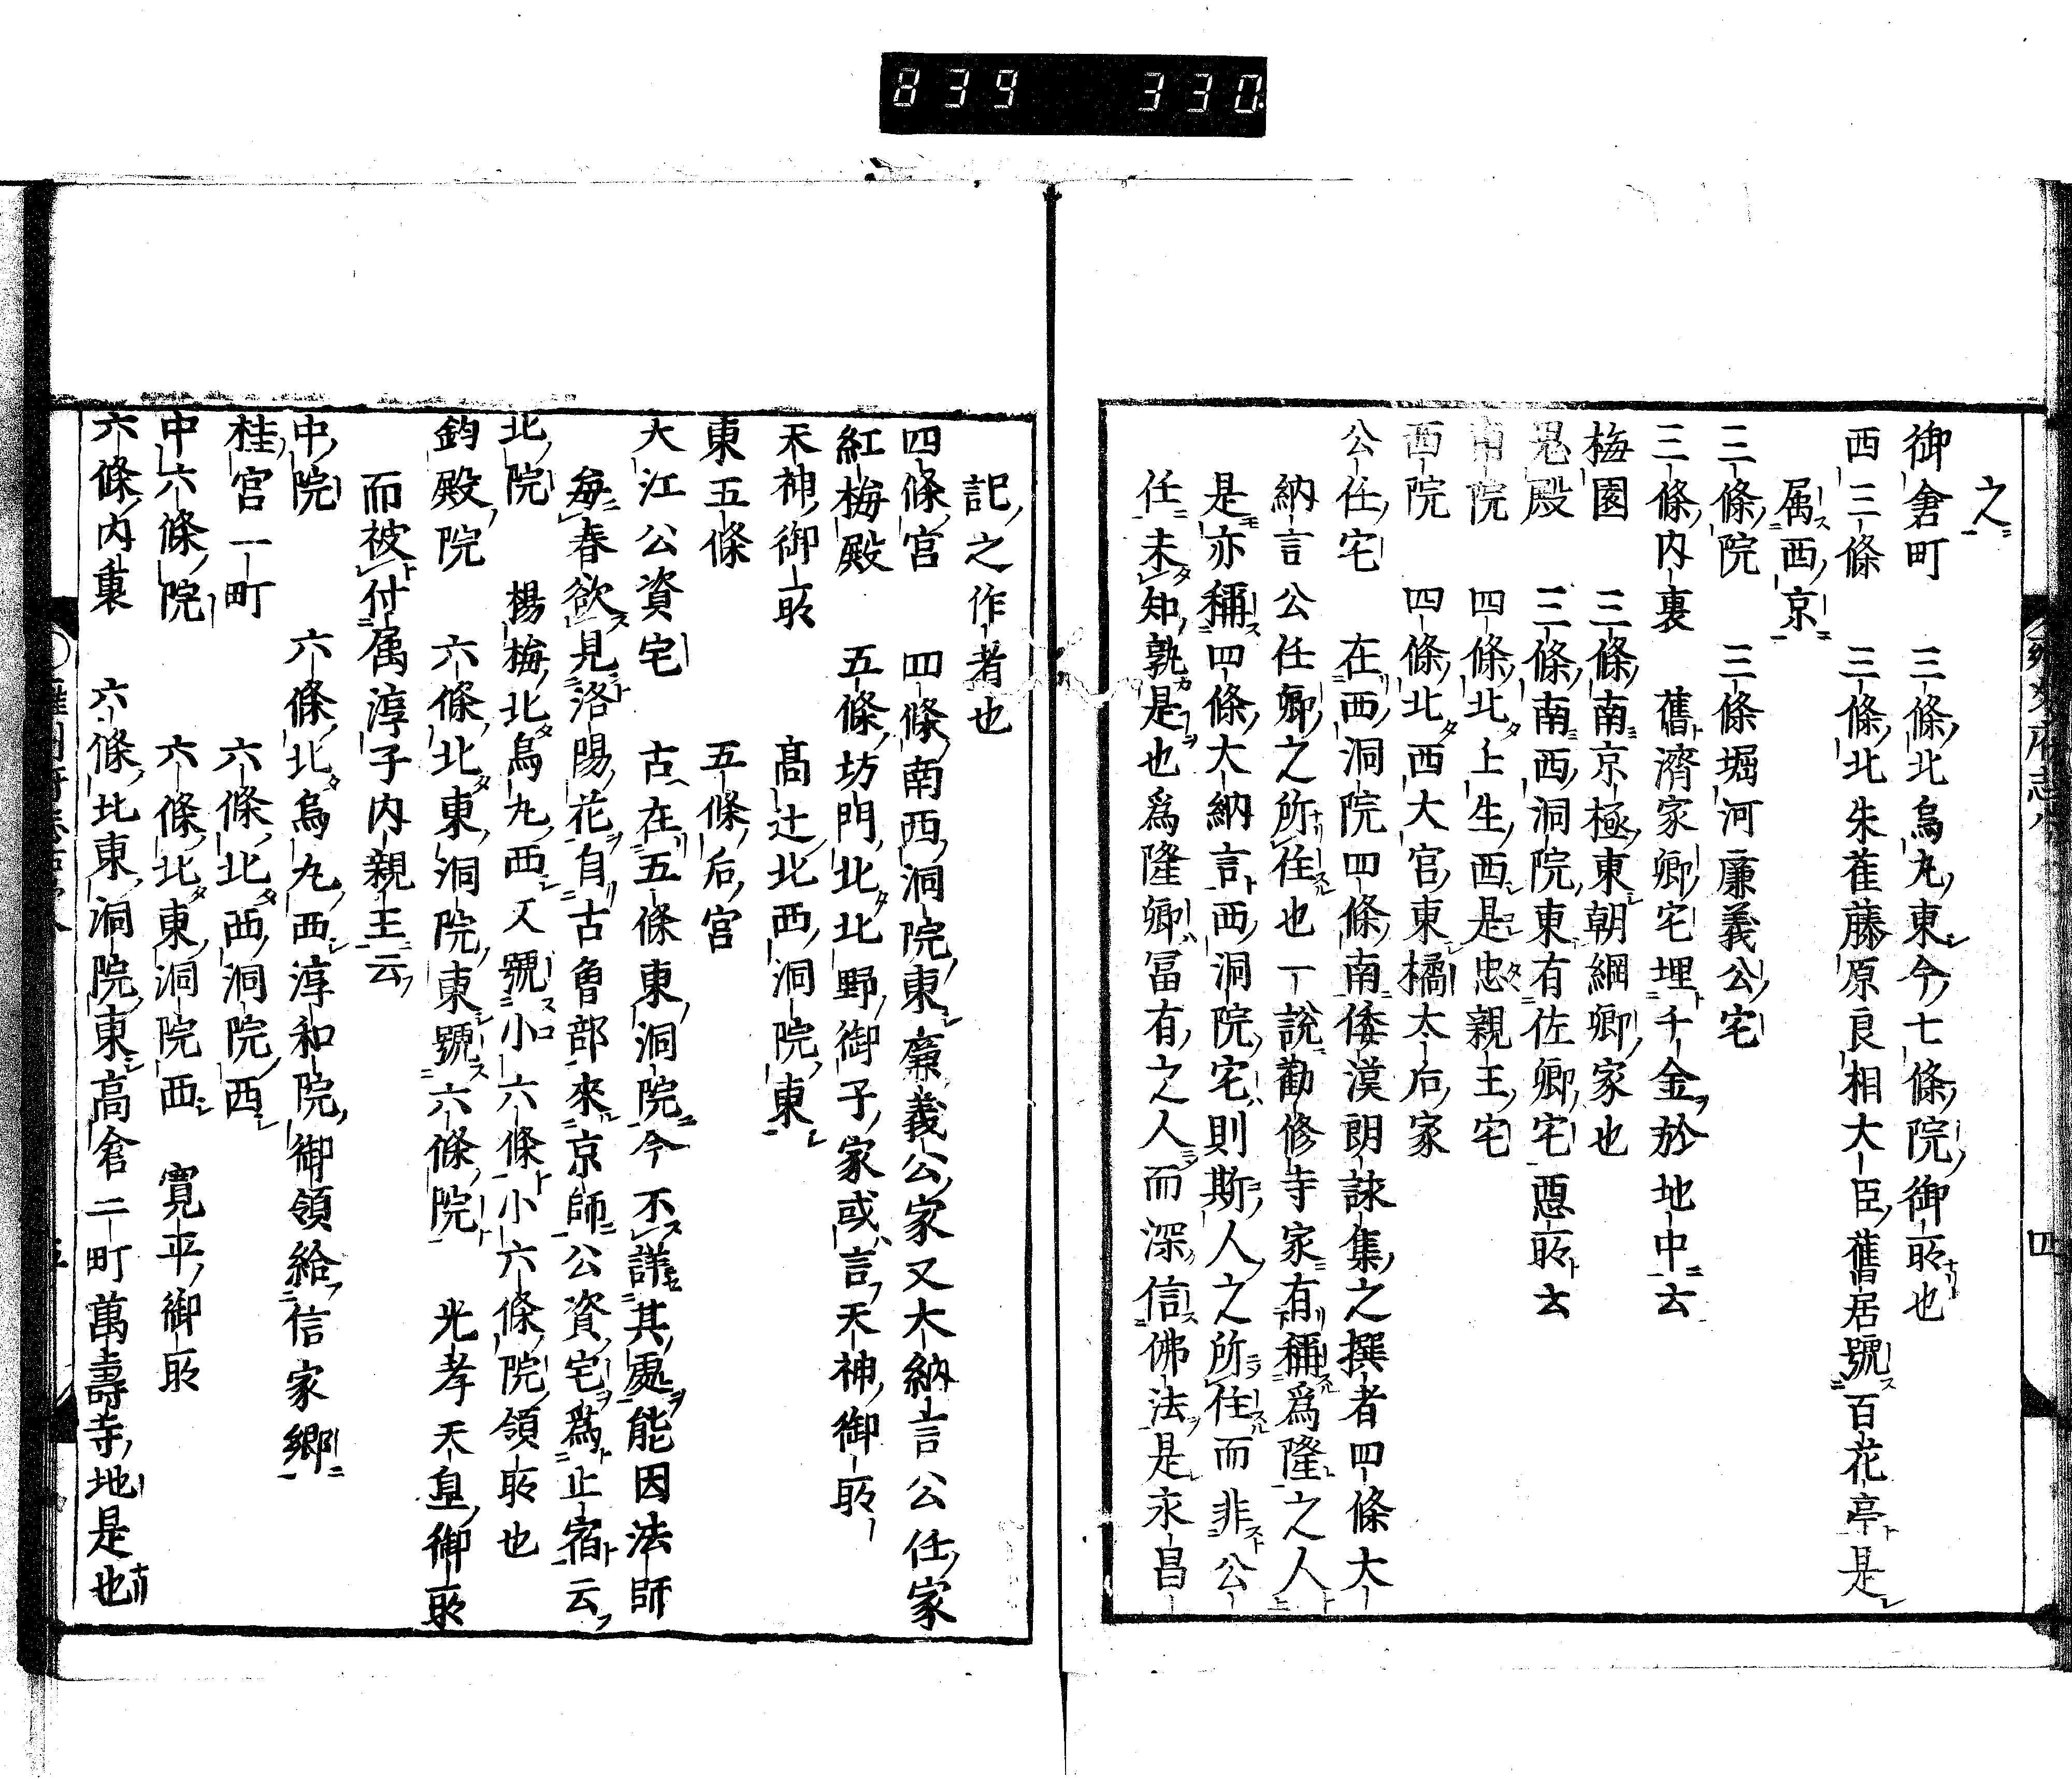 839 330
之
御倉町 三條北烏丸東今七條院御所也
西三條 三條北朱雀藤原良相大臣舊居號百花亭是
属西京
三條院 三條堀河廉義公宅
三條内裏 舊濟家卿宅埋千金於地中云
梅園 三條南京極東朝綱卿家也
鬼殿 三條南西洞院東有佐卿宅惡所云
南院 四條北壬生西是忠親王宅
西院 四條北西大宮東橘太后家
公任宅 在西洞院四條南倭漢朗詠集之撰者四條大
納言公任卿之所住也一說勸修寺家有稱爲隆之人
是亦稱四條大納言西洞院宅則斯人之所住而非公
任未知孰是也爲隆卿冨有之人而深信佛法是永昌
記之作者也
四條宮 四條南西洞院東廉義公家又大納言公任家
紅梅殿 五條坊門北北野御子家或言天神御所
天神御所 髙辻北西洞院東
東五條 五條后宮
大江公資宅 古在五條東洞院今不詳其處能因法師
每春欲見洛陽花自古曾部來京師公資宅爲止宿云
北院 楊梅北烏丸西又號小六條小六條院領所也
釣殿院 六條北東洞院東號六條院 光孝天皇御所
而被付属淳子内親王云
中院 六條北烏丸西淳和院御領給信家鄉
桂宮一町 六條北西洞院西
中六條院 六條北東洞院西 寬平御所
六條内裏 六條北東洞院東高倉二町萬壽寺地是也